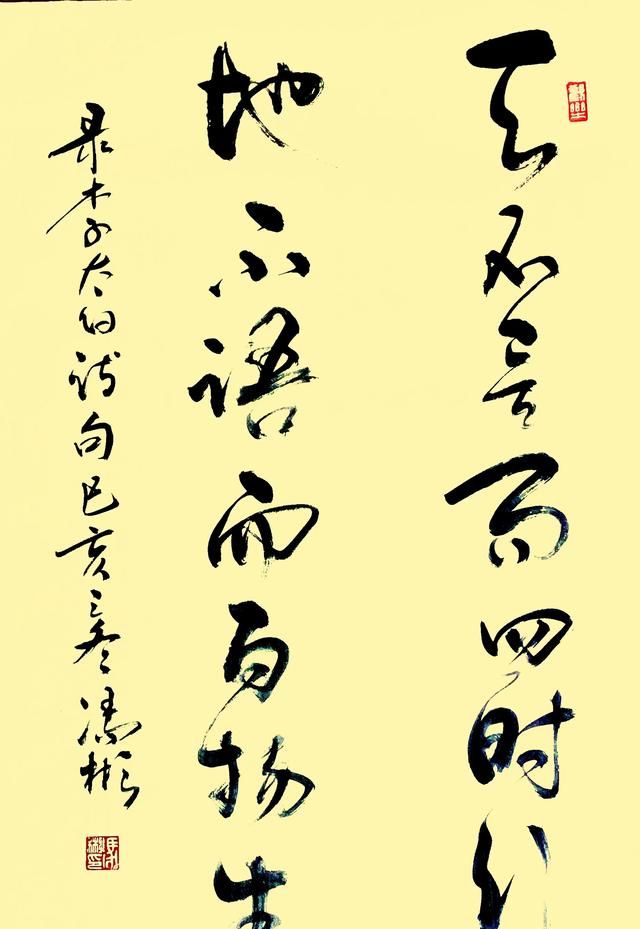 天不言而四时行
地不语而百物生
录李太白诗句己亥之冬馮彬